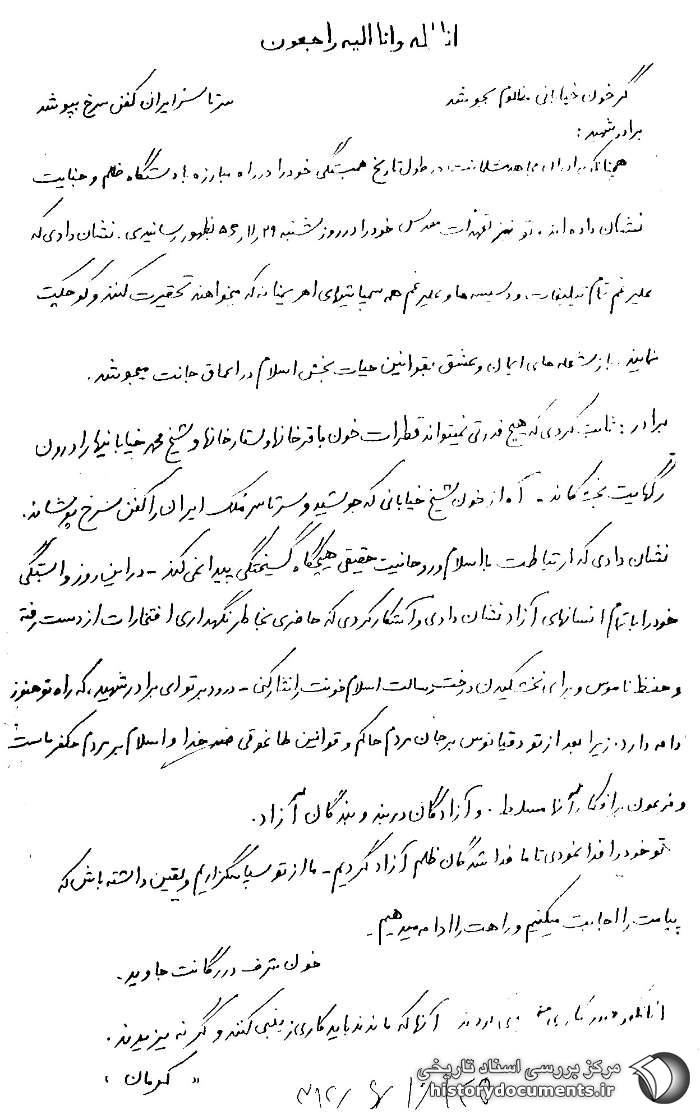 انا لله وانا الیه راجعون
گر خون خیابانی مظلوم بجوشد سرتاسر ایران کفن سرخ بپوشد
برادر شهید :
همچنانکه برادران مجاهد در طول تاریخ همبستگی خود را در راه مبارزه با دستگاه ظلم و جنایت
نشان داده اند . تو نیز تعهدات مقدس خود را در روز شنبه ۲۹ر۱۱ر۵۶ بظهور رسانیدی . نشان دادی که
علیرغم تمام تبلیغات و دسیسه ها و علیرغم همه اهریمنانه که میخواهند تحقیرت کنند و کوچکت
نمایند . باز شعله های ایمان و عشق بقوانین حیات بخش اسلام در اعماق جانت میجوشد .
برادر : ثابت کردی که هیچ قدرتی نمیتواند قطرات خون باقرخانها و ستارخانها و شیخ محمد خیابانیها را درون
رگهایت بخشکاند - آه از خون شیخ خیابانی که جوشید و سرتاسر ملک ایران را کفن سرخ پوشاند .
نشان دادی که ارتباطت با اسلام و روحانیت حقیقی هیچگاه گسیختگی پیدا نمی کند - در این روز وابستگی
خود را با تمام انسانهای آزاد نشان دادی و آشکار کردی که حاضری بخاطر نگهداری افتخارات از دست رفته
و حفظ ناموس و برای نخشکیدن درخت رسالت اسلام خونت را نثار کنی - درود بر تو ای برادر شهید ، که راه تو هنوز
ادامه دارد . زیرا بعد از تو دقیانوس بر جان مردم حاکم و قوانین طاغوتی ضد خدا و اسلام بر مردم حکمفرماست
و فرعون بر افکار آنها مسلط . و آزادگان در بند و بندگان آزاد .
تو خود را فدا نمودی تا ما فدا شدگان ظلم آزاد گردیم - ما از تو سپاسگزاریم و یقین داشته باش که
پیامت را اجابت میکنیم و راهت را ادامه میدهیم .
خون شرف در رگانت جاوید .
آنانکه رفتند کاری حسینی کردند آنها که ماندند باید کاری زینبی کنند وگرنه یزیدیند .
" کرمان "
مرکز بررسی اسناد تاریخی
historydocuments.ir